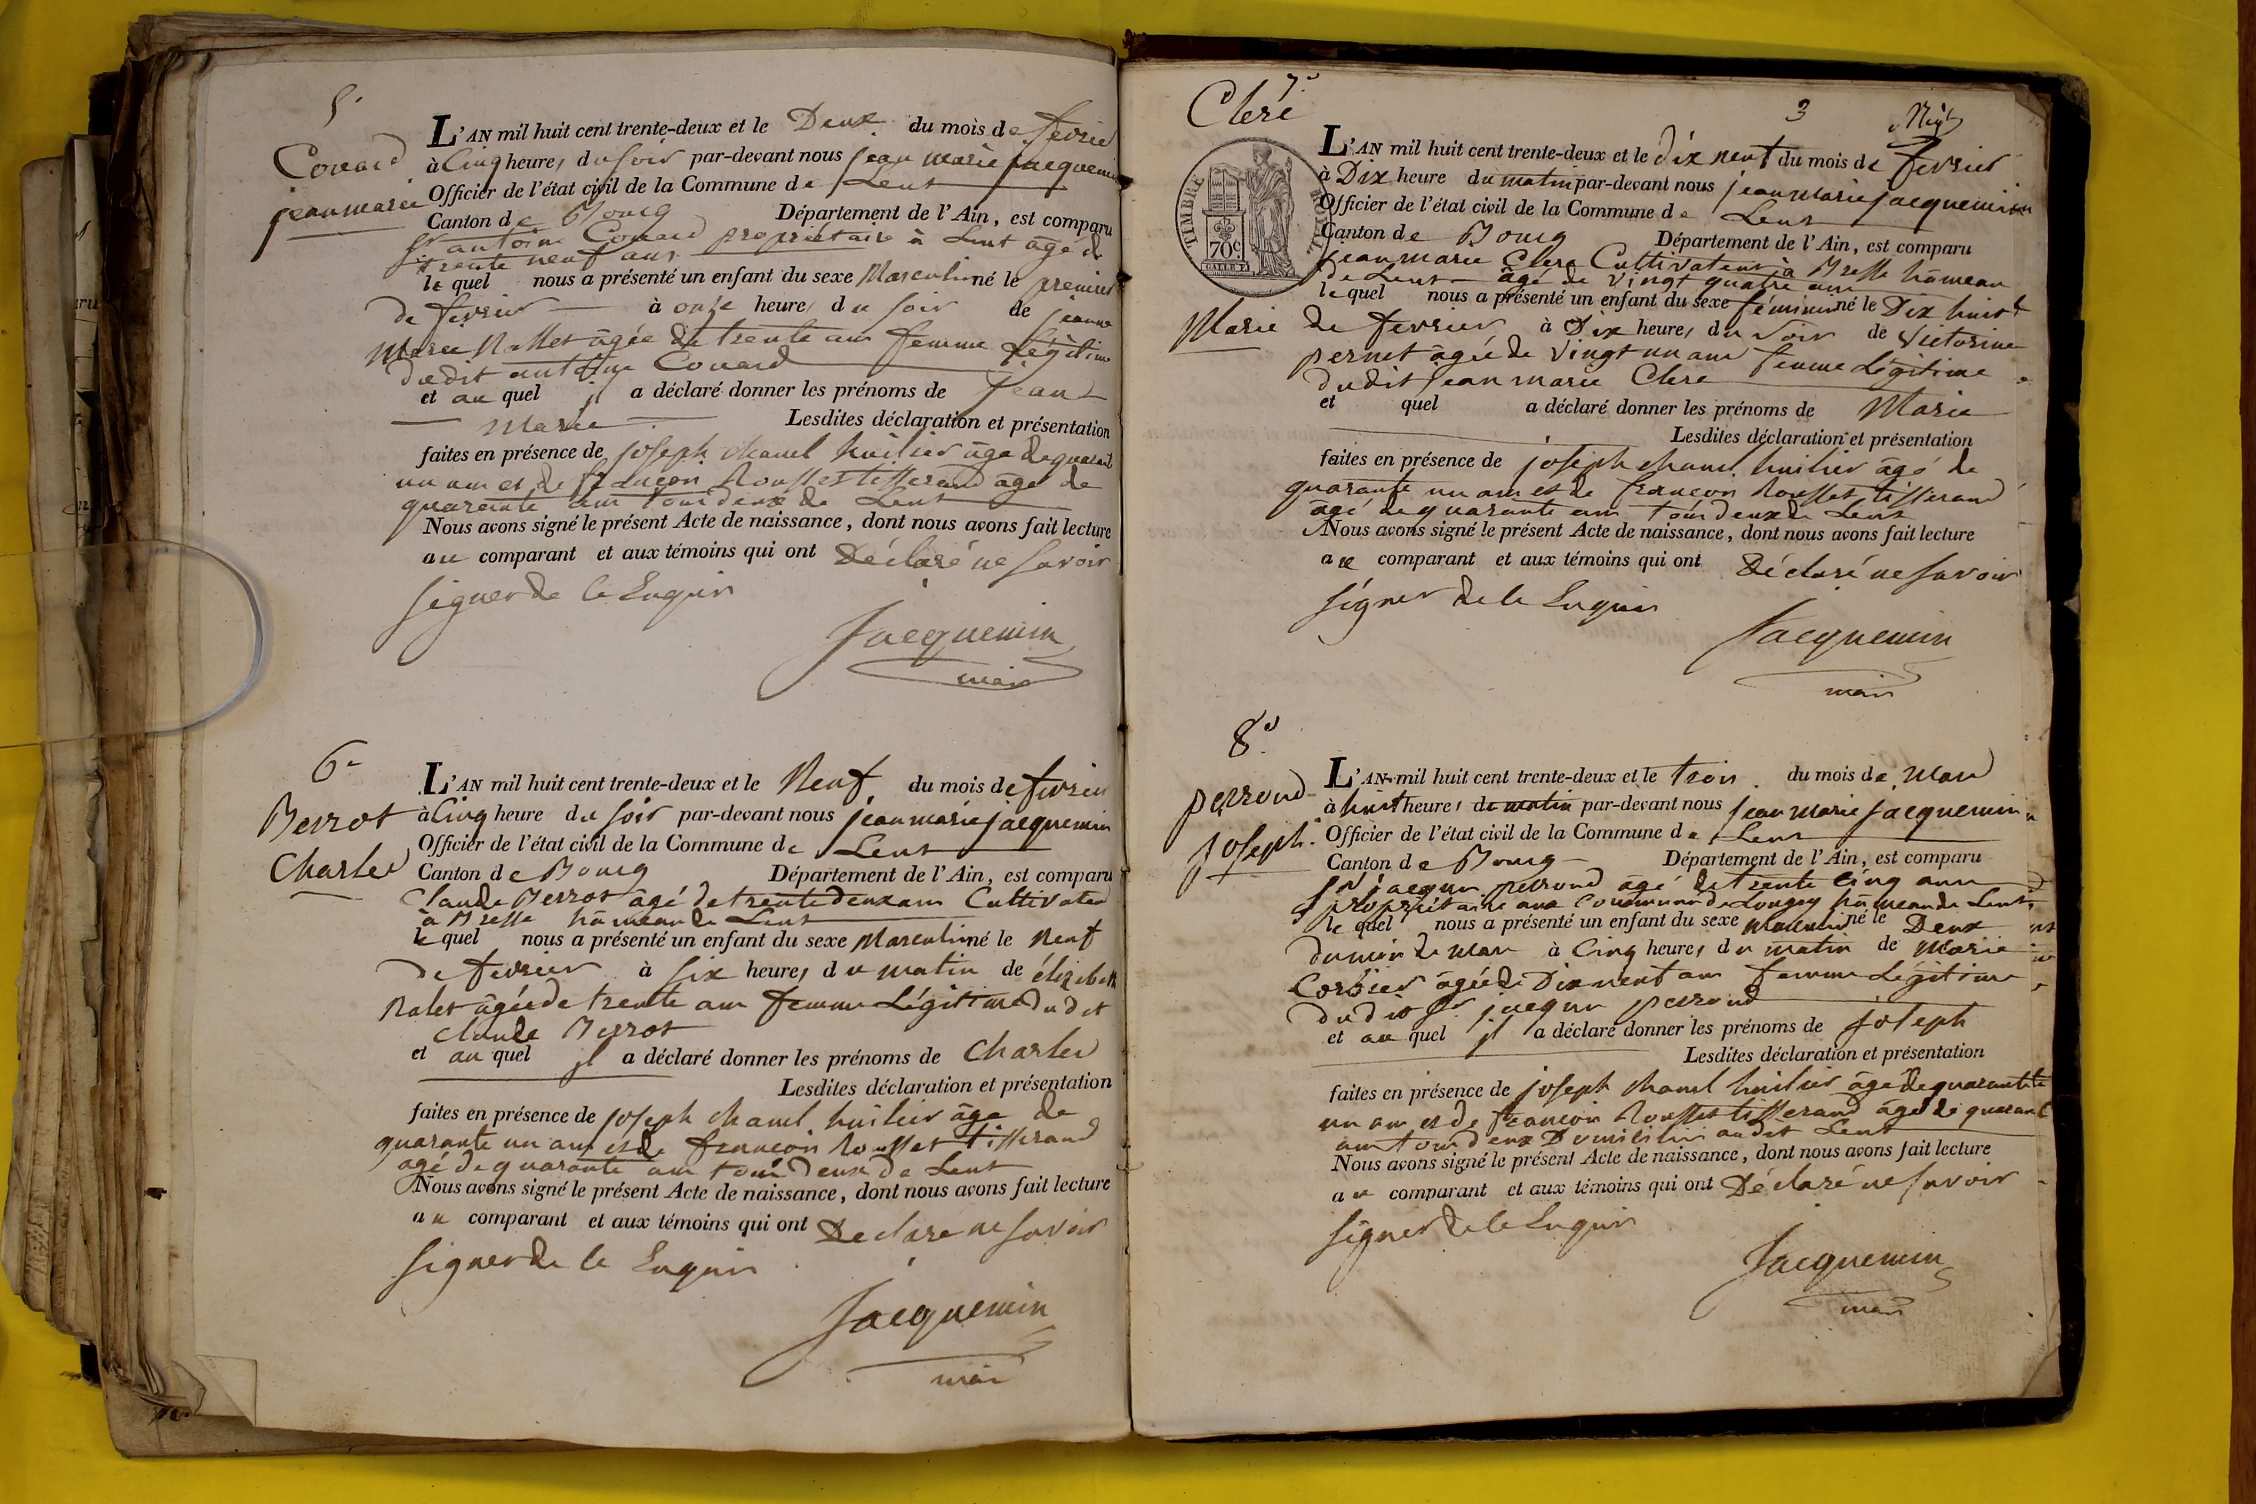 5.
Couard
jean marie
L'AN mil huit cent trente-deux et le Deux du mois de fevrier
à Cinq heures du soir par-devant nous jean marie jacquemin
Officier de l'état civil de la Commune de Lent
Canton de Bourg Département de l'Ain, est comparu
Sr antoine Couard propriétaire à Lent âgé de
trente neuf ans
lequel nous a présenté un enfant du sexe Masculin né le premier
de fevrier à onze heures du soir de jeanne
Marie âgée de trente ans femme Légitime
dudit antoine Couard
et auquel il a déclaré donner les prénoms de jean
Marie Lesdites déclaration et présentation
faites en présence de joseph chanel huilier âgé de quarante
un ans et de françois Rousset tisserand âgé de
quarante ans tous deux de Lent
Nous avons signé le présent Acte de naissance, dont nous avons fait lecture
au comparant et aux témoins qui ont Déclaré ne savoir
signer de ce Enquis
Jacquemin
maire
6e
Berrot
Charles
L'AN mil huit cent trente-deux et le Neuf du mois de fevrier
à Cinq heure du soir par-devant nous jean marie jacquemin
Officier de l'état civil de la Commune de Lent
Canton de Bourg Département de l'Ain, est comparu
Claude Berrot âgé de trente deux ans Cultivateur
à Bresse hâmeau de Lent
lequel nous a présenté un enfant du sexe Masculin né le Neuf
de fevrier à six heures du matin de élizabeth
Ralet âgée de trente ans femme Légitime dudit
claude Berrot
et auquel il a déclaré donner les prénoms de Charles
Lesdites déclaration et présentation
faites en présence de joseph chanel huilier âgé de
quarante un ans et de françois Rousset tisserand
âgé de quarante ans tous deux de Lent
Nous avons signé le présent Acte de naissance, dont nous avons fait lecture
au comparant et aux témoins qui ont Declaré ne savoir
signer de ce Enquis
Jacquemin
maire
7e
Clere
3
TIMBRE ROYAL
70c
Marie
L'AN mil huit cent trente-deux et le dix neuf du mois de fevrier
à Dix heure du matin par-devant nous jean marie jacquemin
Officier de l'état civil de la Commune de Lent
Canton de Bourg Département de l'Ain, est comparu
jean marie Clere Cultivateur à Bresse hâmeau
de Lent âgé de vingt quatre ans
lequel nous a présenté un enfant du sexe féminin né le Dix huit
de fevrier à Dix heures du soir de Victorine
pernet âgée de vingt un ans femme Légitime
dudit jean marie Clere
et quel a déclaré donner les prénoms de Marie
Lesdites déclaration et présentation
faites en présence de joseph chanel huilier âgé de
quarante un ans et de françois Rousset tisserand
âgé de quarante ans tous deux de Lent
Nous avons signé le présent Acte de naissance, dont nous avons fait lecture
au comparant et aux témoins qui ont Déclaré ne savoir
signer de ce Enquis
Jacquemin
maire
8e
perroud
joseph
L'AN mil huit cent trente-deux et le trois du mois de Mars
à huit heures du matin par-devant nous jean marie jacquemin
Officier de l'état civil de la Commune de Lent
Canton de Bourg Département de l'Ain, est comparu
Sr jacques perroud âgé de trente cinq ans
propriétaire aux Communs de Longey hâmeau de Lent
lequel nous a présenté un enfant du sexe masculin né le Deux
du mois de Mars à Cinq heures du matin de Marie
Corbier âgée de Dix neuf ans femme Légitime
dudit Sr jacques perroud
et auquel il a déclaré donner les prénoms de joseph
Lesdites déclaration et présentation
faites en présence de joseph chanel huilier âgé de quarante
un ans et de françois Rousset tisserand âgé de quarante
ans tous deux Domiciliés audit Lent
Nous avons signé le présent Acte de naissance, dont nous avons fait lecture
au comparant et aux témoins qui ont Déclaré ne savoir
signer de ce Enquis
Jacquemin
maire